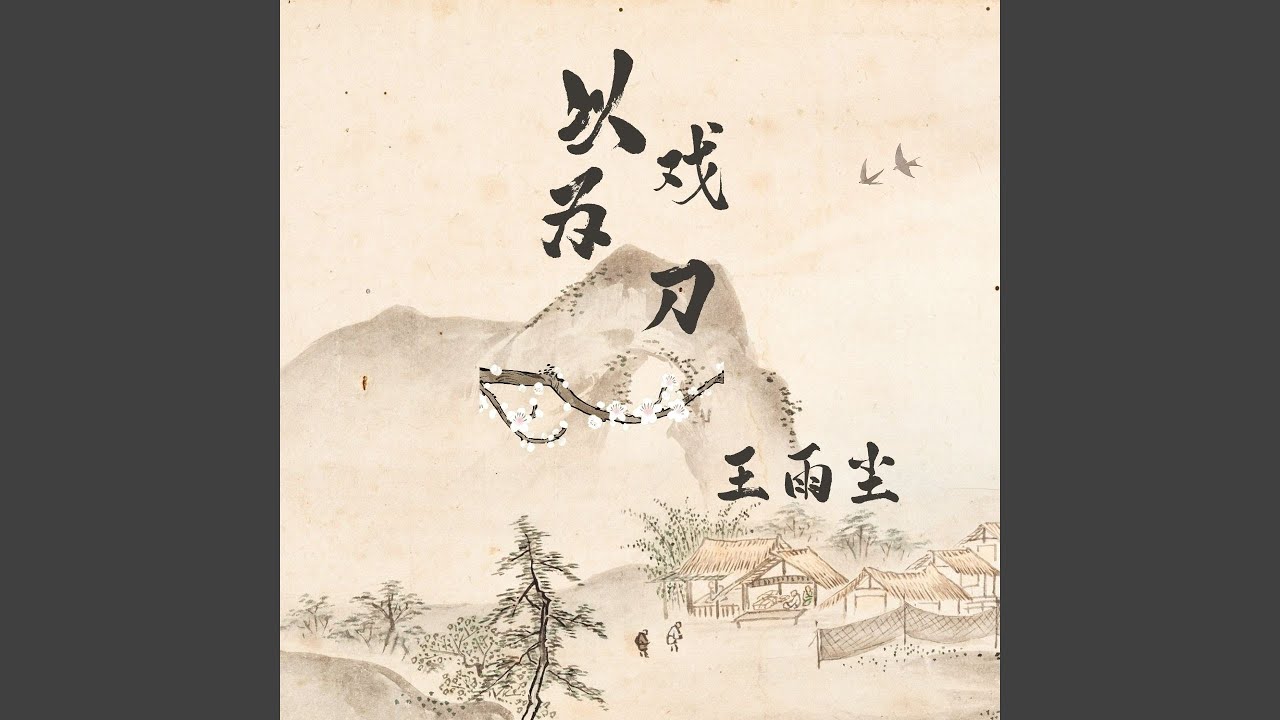 以戏
为刀
王雨尘